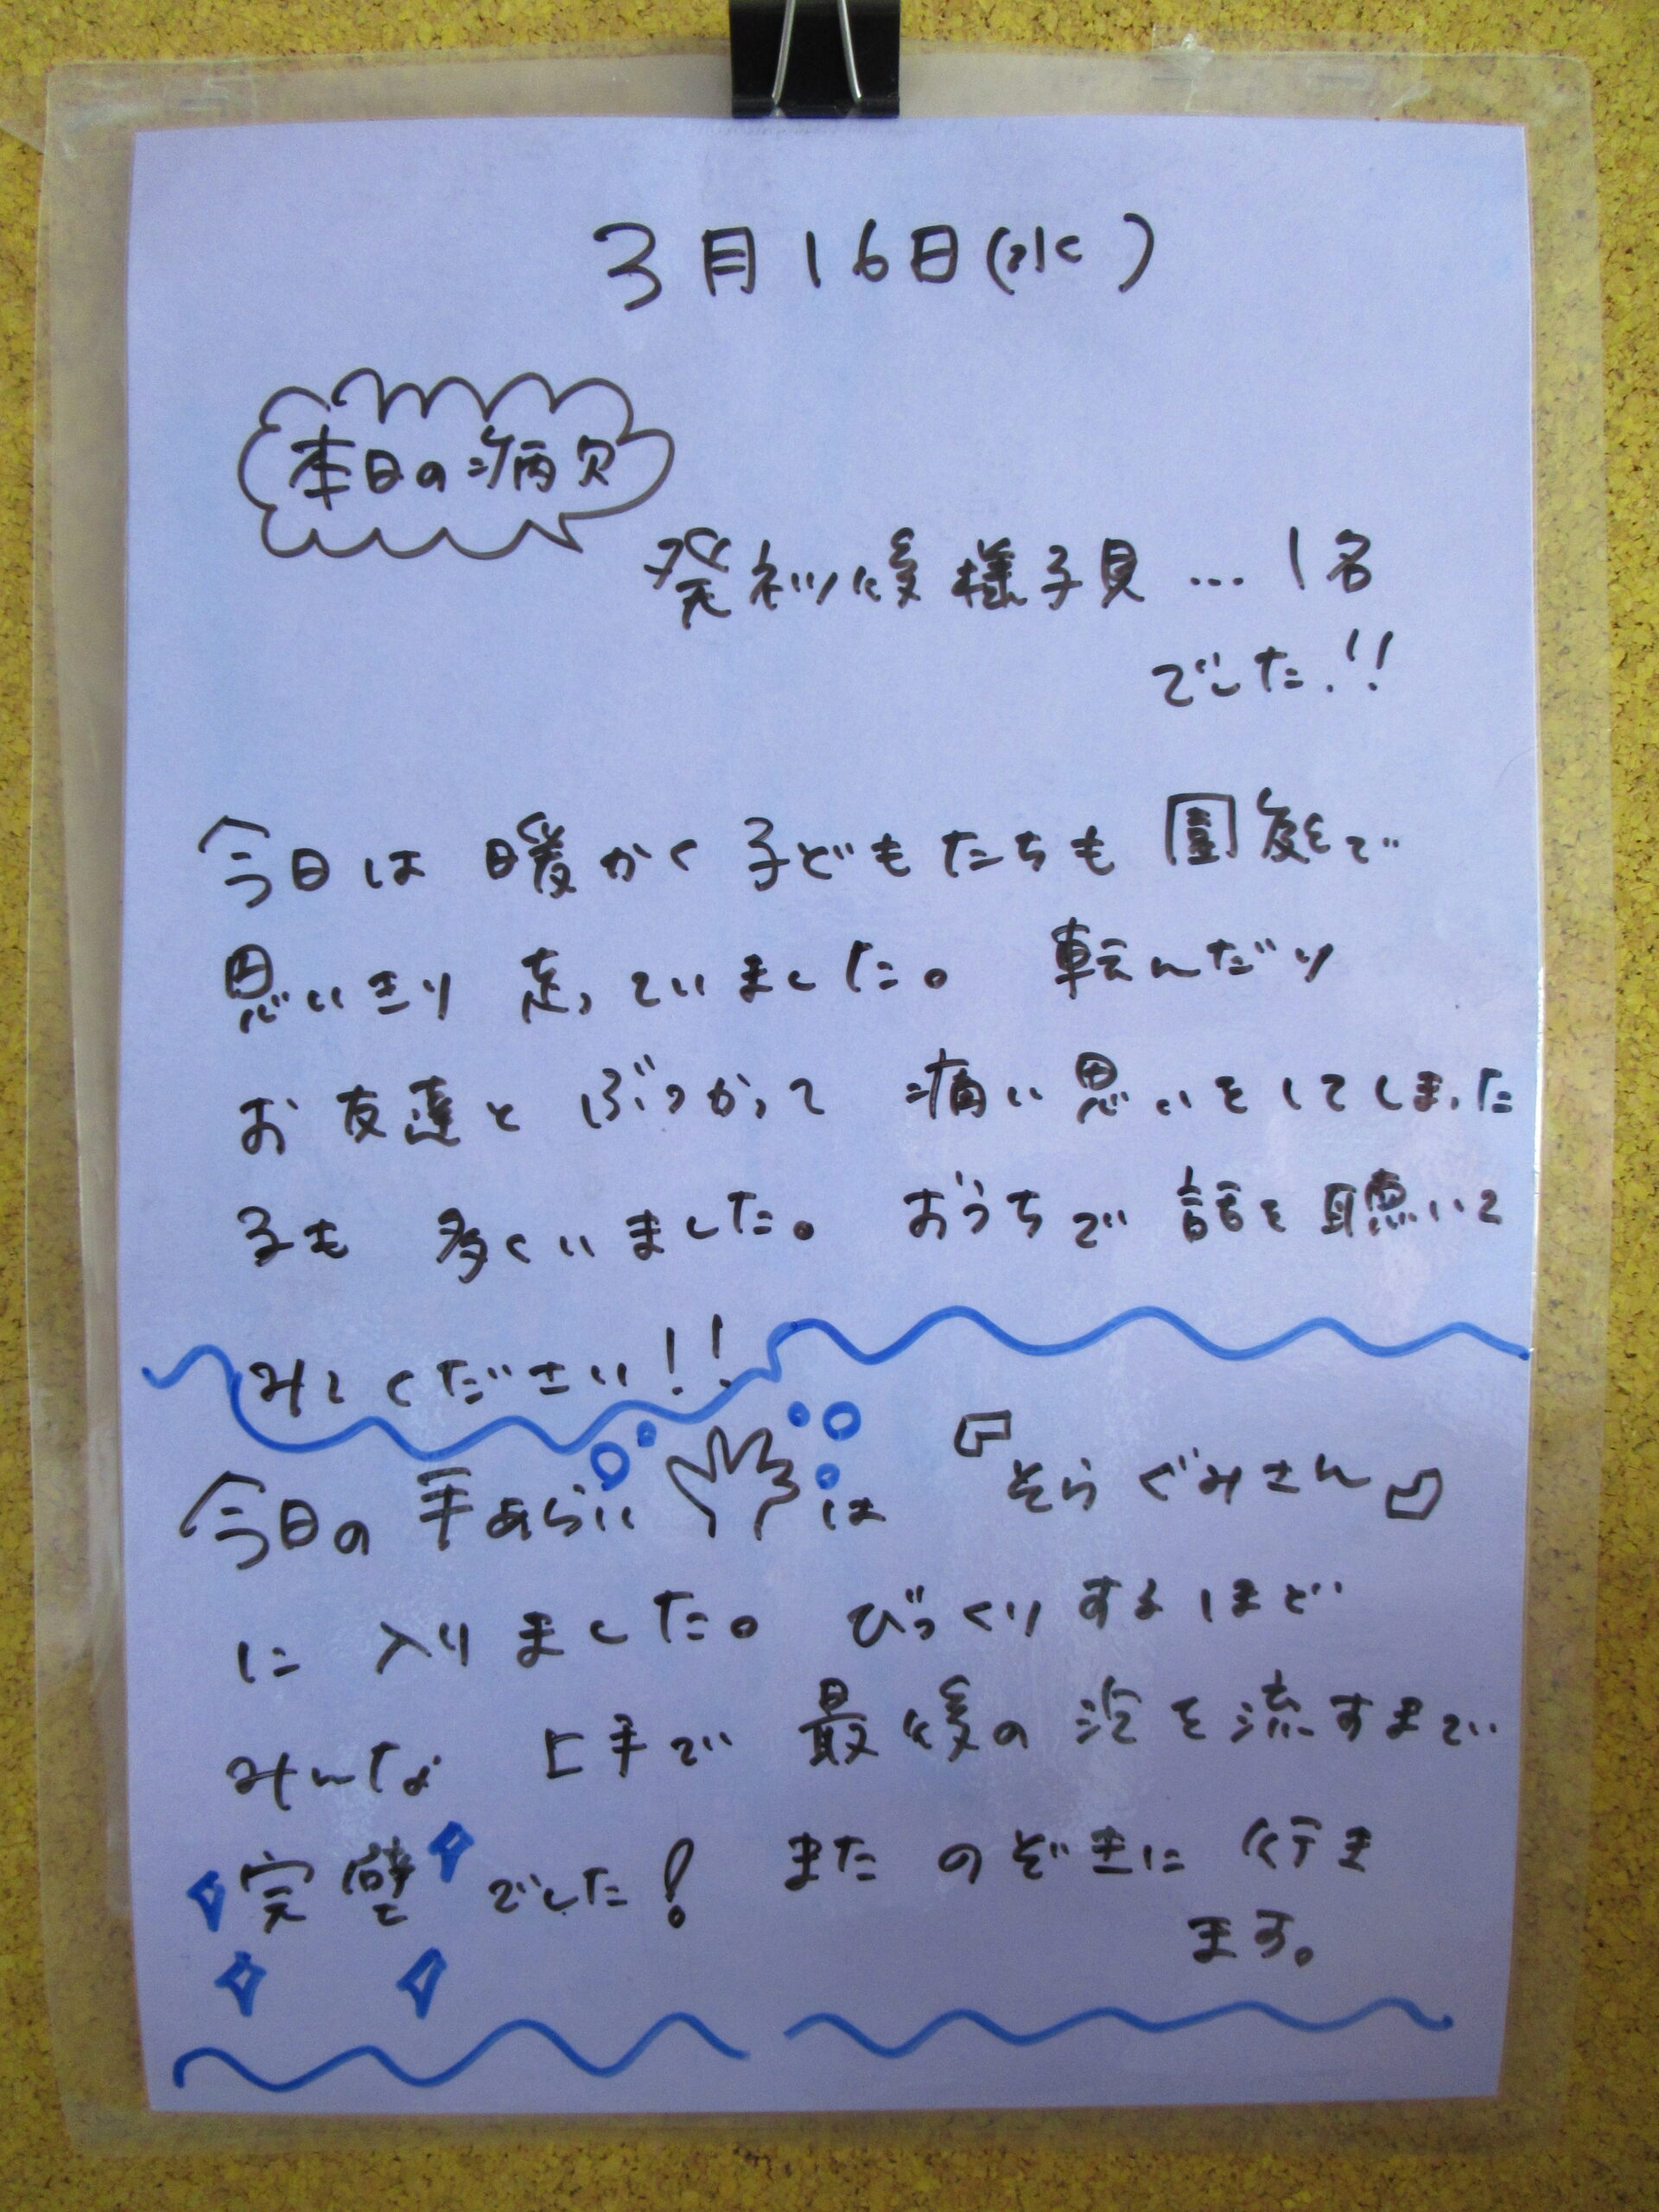 3月16日(水)
本日の病欠
発熱後様子見…1名
でした!!
今日は 暖かく 子どもたちも 園庭で
思いきり 走っていました。 転んだり
お友達と ぶつかって 痛い思いをしてしまった
子も 多くいました。 おうちで 話を聴いて
みてください!!
今日の 手あらい は 『そらぐみさん』
に 入りました。 びっくりするほど
みんな 上手で 最後の 泡を流すまで
完璧 でした! また のぞきに 行き
ます。